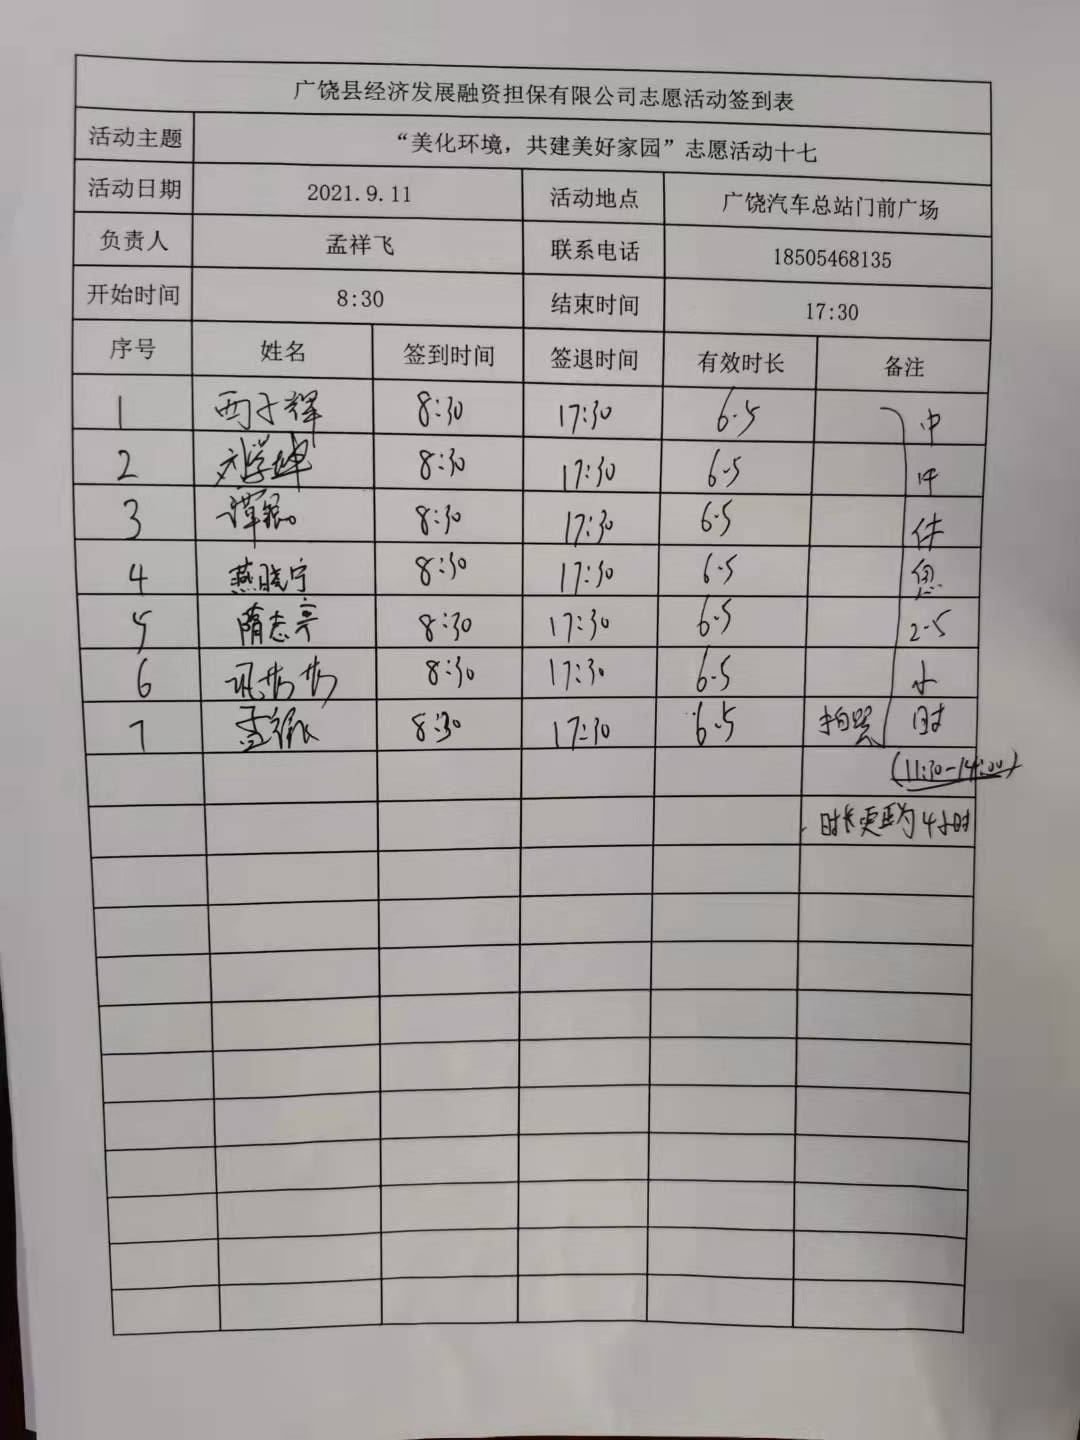 广饶县经济发展融资担保有限公司志愿活动签到表
活动主题 “美化环境，共建美好家园”志愿活动十七
活动日期 2021.9.11 活动地点 广饶汽车总站门前广场
负责人 孟祥飞 联系电话 18505468135
开始时间 8:30 结束时间 17:30
序号 姓名 签到时间 签退时间 有效时长 备注
1 西子辉 8:30 17:30 6.5 中
2 刘学坤 8:30 17:30 6.5 午
3 8:30 17:30 6.5 休
4 燕晓宁 8:30 17:30 6.5 息
5 隋志亭 8:30 17:30 6.5 2.5
6 8:30 17:30 6.5 小
7 8:30 17:30 6.5 拍照 时
(11:30-14:00)
时长更正为4小时